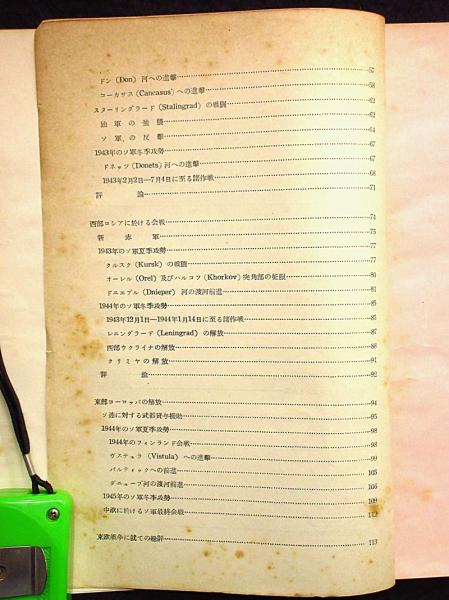 ドン (Don) 河への進撃 57
コーカサス (Cancasus) への進撃 58
スターリングラード (Stalingrad) の戦闘 62
独軍の強襲 62
ソ軍の反撃 64
1943年のソ軍冬季攻勢 67
ドネッツ (Donets) 河への進撃 68
1943年2月2日—7月4日に至る諸作戦
評論 71
西部ロシアに於ける会戦 74
新赤軍 75
1943年のソ軍夏季攻勢 77
クルスク (Kursk) の戦闘 77
オーレル (Orel) 及びハルコフ (Khorkov) 突角部の征服 80
ドニエプル (Dnieper) 河の渡河前進 81
1944年のソ軍冬季攻勢 85
1943年12月1日—1944年1月14日に至る諸作戦 85
レニングラード (Leningrad) の解放 87
西部ウクライナの解放 88
クリミヤの解放 91
評論 92
東部ヨーロッパの解放 94
ソ連に対する武器貸与援助 95
1944年のソ軍夏季攻勢 98
1944年のフィンランド会戦 98
ヴステュラ (Vistula) への進撃 99
バルティックへの前進 105
ダニューブ河の渡河前進 106
1945年のソ軍冬季攻勢 109
中欧に於けるソ軍最終会戦 112
東欧戦争に就ての総評 113